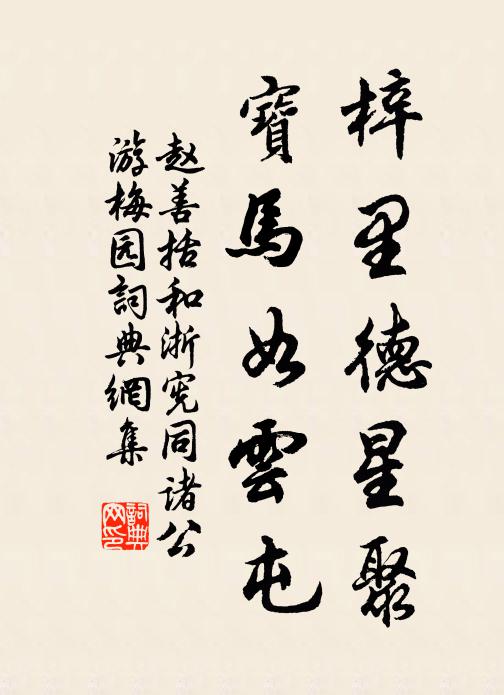 梓里德星聚
寶馬如雲屯
赵善括和浙宪同诸公
游梅园詞典網集
詞典网印